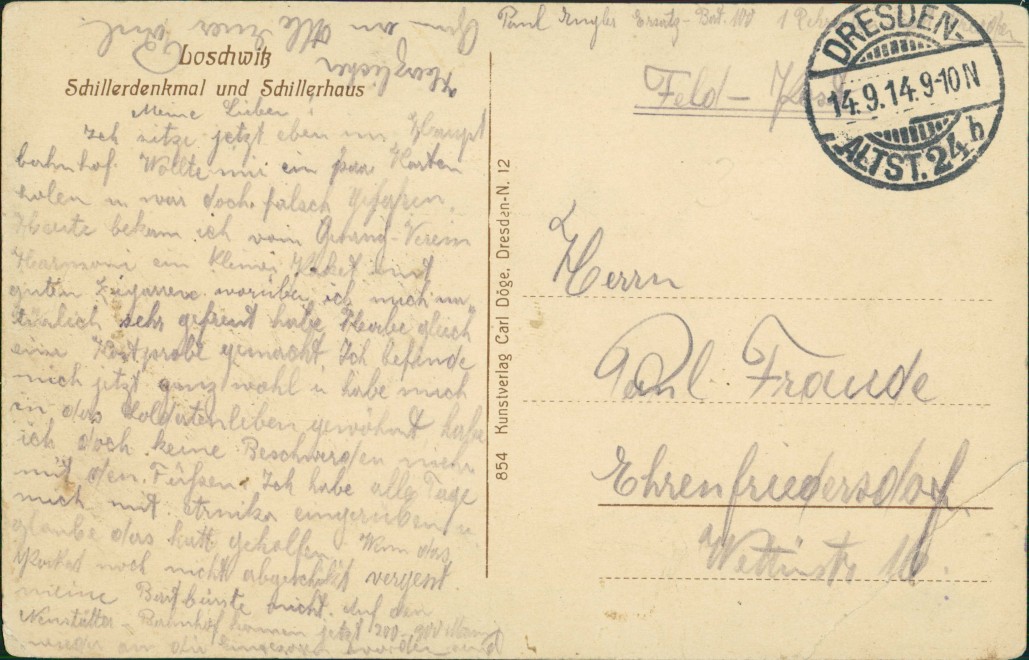 Loschwitz
Schillerdenkmal und Schillerhaus
Meine Lieben!
Ich sitze jetzt eben im Haupt
bahnhof. Wollte mir ein paar Karten
holen u war doch falsch gefaren.
Heute bekam ich vom Gesang-Verein
Harmoni ein kleines Paket mit
guten Zigarren worüber ich mich na
türlich sehr gefreut habe. Habe gleich
eine Kostprobe gemacht Ich befinde
mich jetzt ganz wohl u habe mich
an das Soldatenleben gewöhnt, habe
ich doch keine Beschwerden mehr
mit den Füßen. Ich habe alle Tage
mich mit Arnika eingerieben u
glaube das hatt geholfen. Wenn das
Packet noch nicht abgeschickt vergest
meine Bartbürste nicht. Auf den
Neustätter-Bahnhof kommen jetzt 200-300 Mann
wieder an die eingezogen wurden und
Herzlichen
Gruß an Alle Euer Paul
854 Kunstverlag Carl Döge, Dresden-N. 12
Paul Engler Ersatz-Bat. 103 1
Feld-Post
DRESDEN-
14.9.14.9-10N
ALTST. 24 h
Herrn
Paul Fraude
Ehrenfriedersdorf.
Wettinstr 10.